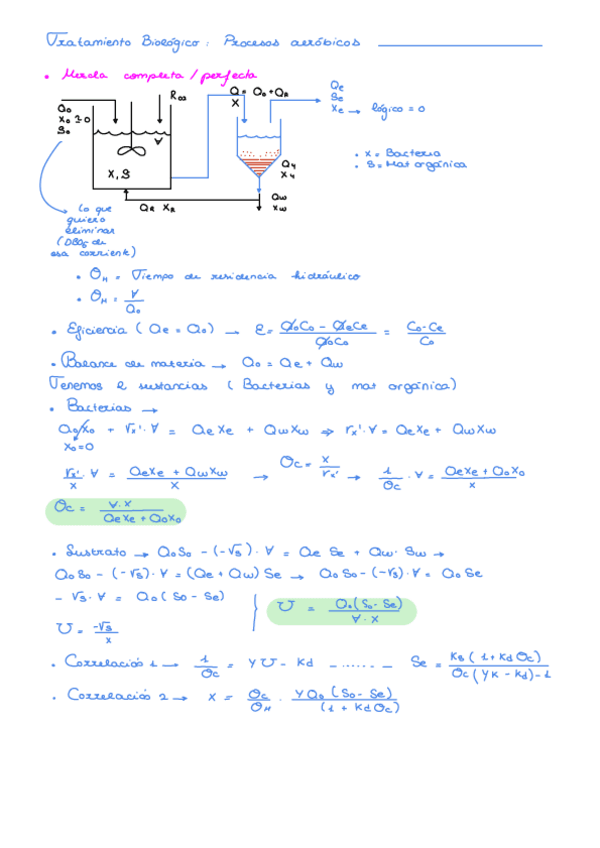 Tratamiento Biológico: Procesos aeróbicos
• Mezcla completa / perfecta
Q₀
X₀ ≈ 0
S₀
V
X, S
Q = Q₀ + QR
X
Qe
Se
Xe → lógico = 0
• X = Bacteria
• S = Mat orgánica
Qu
Xu
Qw
Xw
QR XR
lo que
quiero
eliminar
(DBO₅ de
esa corriente)
• ΘH = Tiempo de residencia hidráulico
• ΘH = V / Q₀
• Eficiencia (Qe = Q₀) → E = (Q₀C₀ - QeCe) / Q₀C₀ = (C₀ - Ce) / C₀
• Balance de materia → Q₀ = Qe + Qw
Tenemos 2 sustancias (Bacterias y mat orgánica)
• Bacterias →
Q₀X₀ + rx'·V = QeXe + QwXw ⇒ rx'·V = QeXe + QwXw
X₀=0
rx'/X · V = (QeXe + QwXw) / X → Θc = X / rx' → 1/Θc · V = (QeXe + Q₀X₀) / X
Θc = V·X / (QeXe + Q₀X₀)
• Sustrato → Q₀S₀ - (-rs)·V = Qe Se + Qw·Sw →
Q₀S₀ - (-rs)·V = (Qe + Qw) Se → Q₀S₀ - (-rs)·V = Q₀ Se
- rs·V = Q₀(S₀ - Se)
U = -rs / X
U = Q₀(S₀ - Se) / V·X
• Correlación 1 → 1/Θc = YU - Kd - ...... - Se = Ks(1 + Kd Θc) / Θc(YK - Kd) - 1
• Correlación 2 → X = Θc/ΘH · YQ₀(S₀ - Se) / (1 + KdΘc)